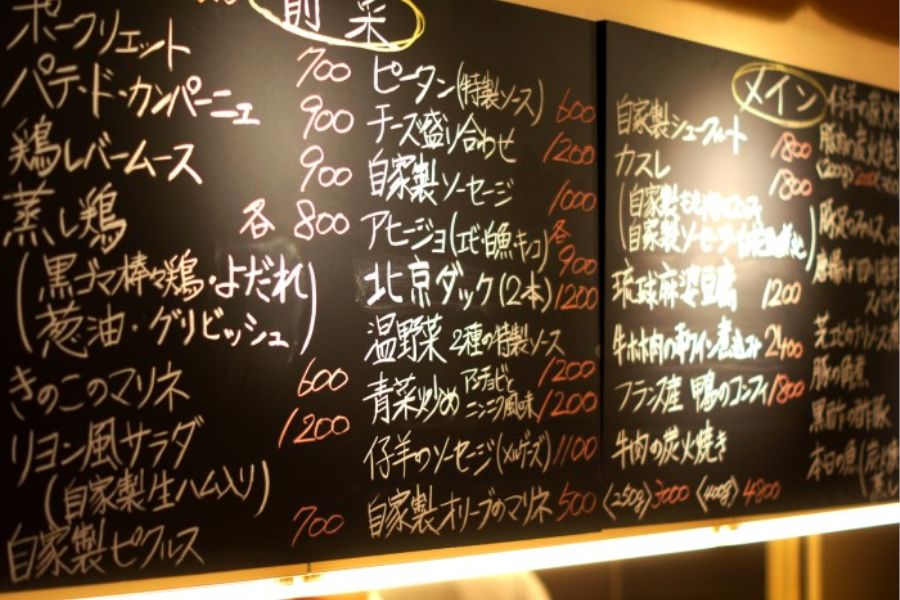 前菜
ポークリエット 700
パテ・ド・カンパーニュ 900
鶏レバームース 900
蒸し鶏 各 800
(黒ゴマ棒々鶏・よだれ
葱油・グリビッシュ)
きのこのマリネ 600
リヨン風サラダ 1200
(自家製生ハム入り)
自家製ピクルス 700
ピータン(特製ソース) 600
チーズ盛り合わせ 1200
自家製ソーセージ 1000
アヒージョ(エビ・白魚・キノコ) 各 900
北京ダック(2本) 1200
温野菜 2種の特製ソース 1200
青菜炒め アンチョビと
ニンニク風味 1200
仔羊のソーセージ(メルゲーズ) 1100
自家製オリーブのマリネ 500
メイン
自家製シュークルート 1800
カスレ 1800
(自家製
自家製ソーセージ
琉球麻婆豆腐 1200
牛ホホ肉の赤ワイン煮込み 2400
フランス産 鴨のコンフィ 1800
牛肉の炭火焼き
<250g> 3000 <400g> 4800
仔羊の炭火
豚肉の炭火焼
<200g>
豚足の
豚の角煮
黒酢の酢豚
本日の魚(炭火
蒸し